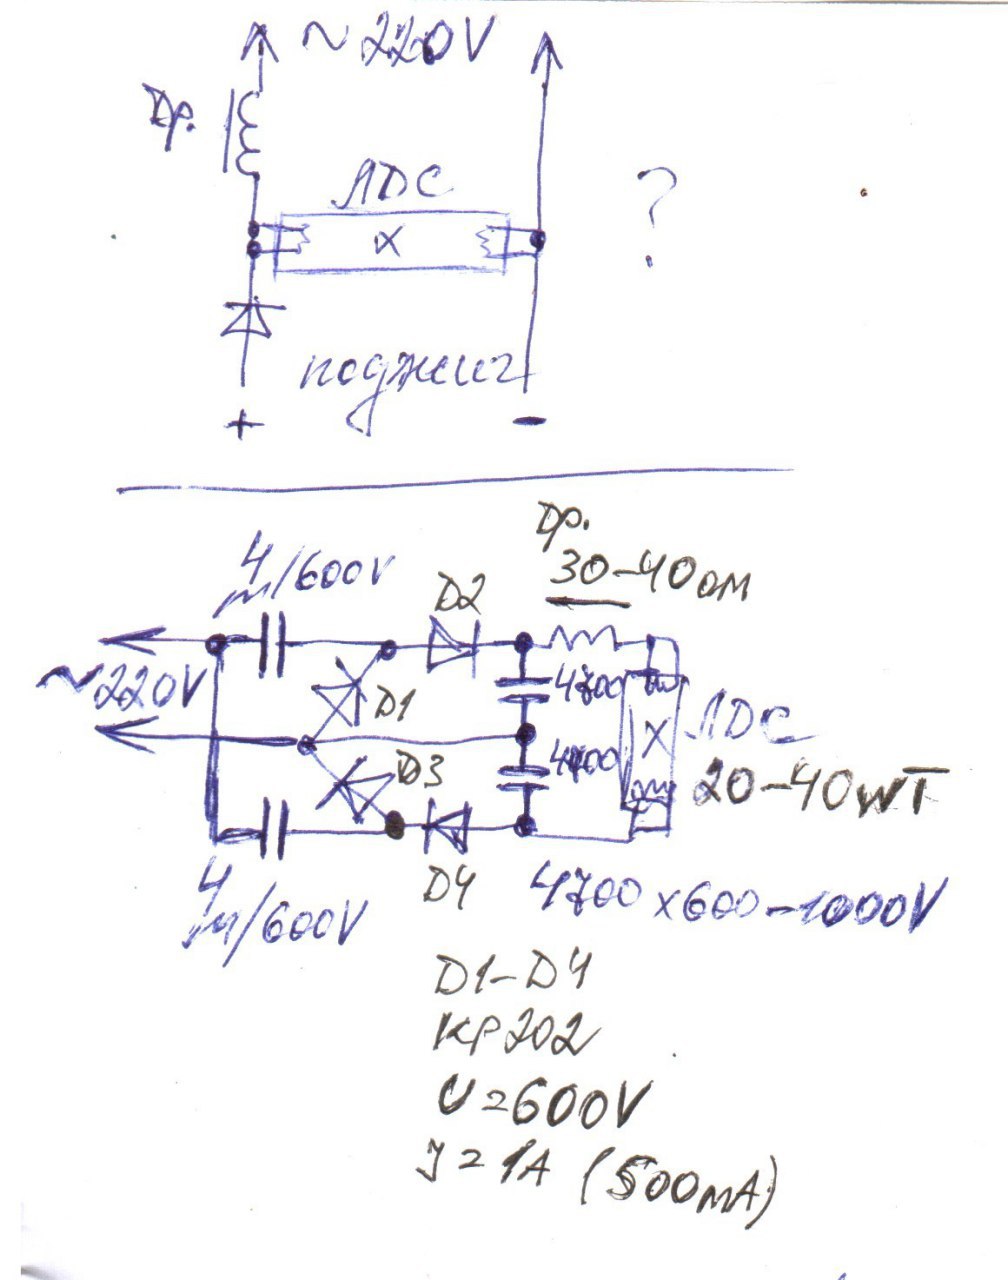 ~220V
Др.
ЛДС
?
поджиг
+ -
Др.
30-40 ом
4 м/600V
D2
4700
~220V
D1
ЛДС
D3
4700
20-40WT
D4
4 м/600V
4700 x 600-1000V
D1-D4
КР202
U=600V
J=1A (500mA)